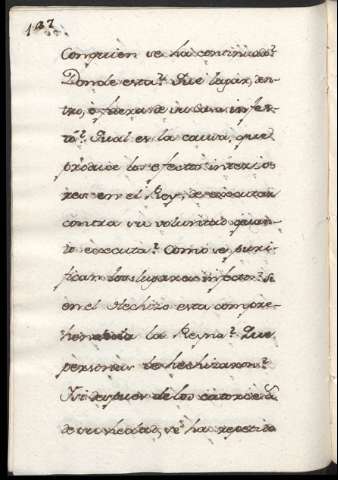 137
Con quien se ha continuado?
Donde esta? Que lugar, den-
tro, o fuera de su casa infec-
to? Qual es la causa, que
produce los efectos interio-
res en el Rey, de executar
contra su voluntad quan-
to executa? Como se puri-
fican los lugares infectos? Si
en el Hechizo esta compre-
hendida la Reyna? Que
personas le hechizaron?
Y si despues de los catorce a.s
de su hedad, se ha repetido